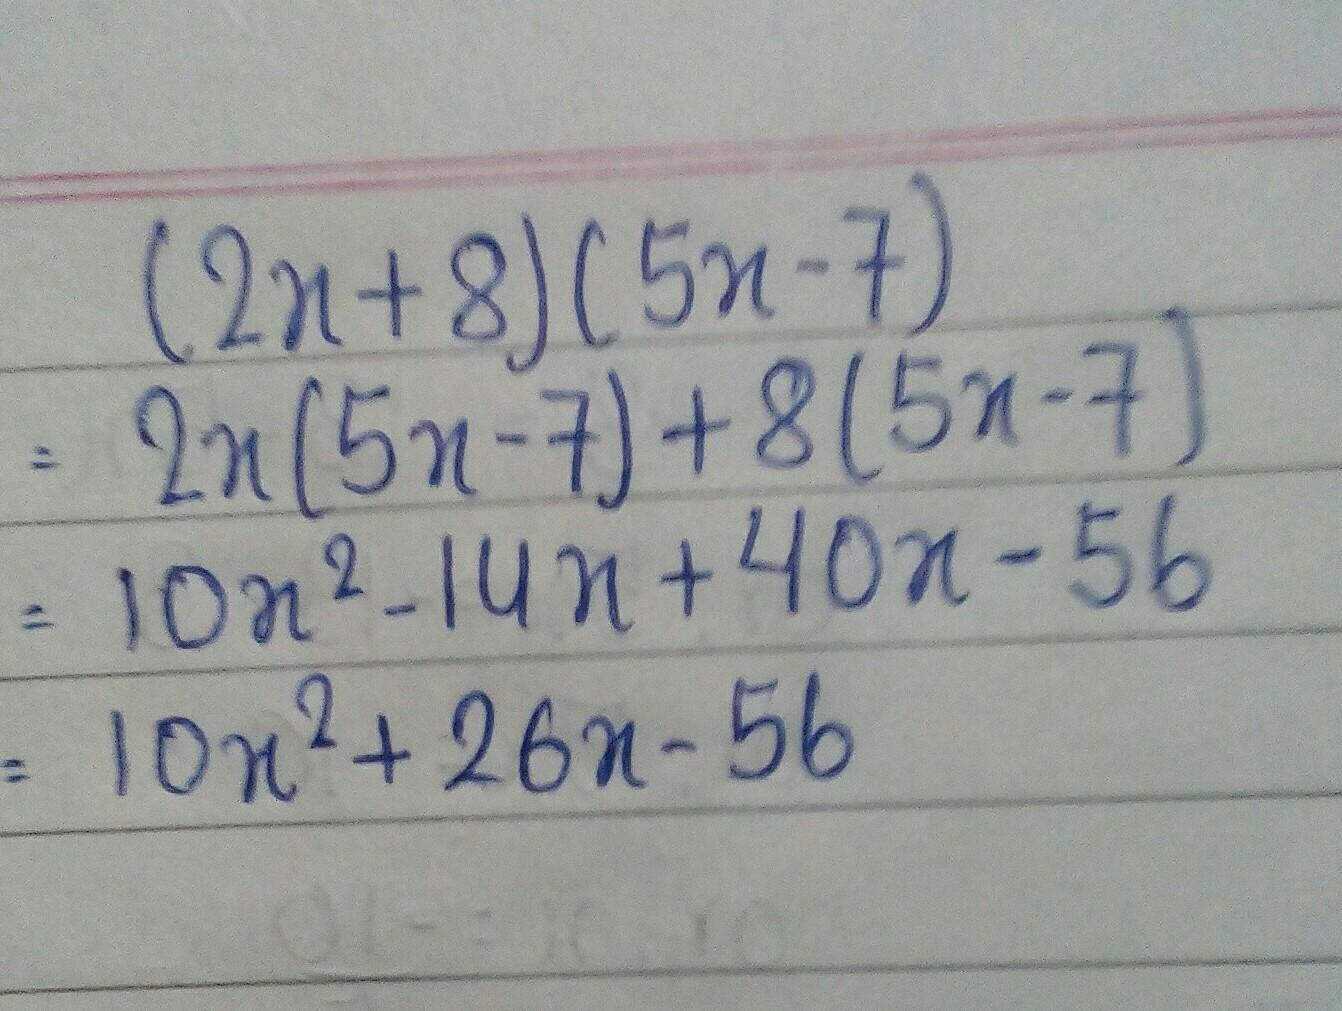 (2x+8)(5x-7)
= 2x(5x-7)+8(5x-7)
= 10x²-14x+40x-56
= 10x²+26x-56